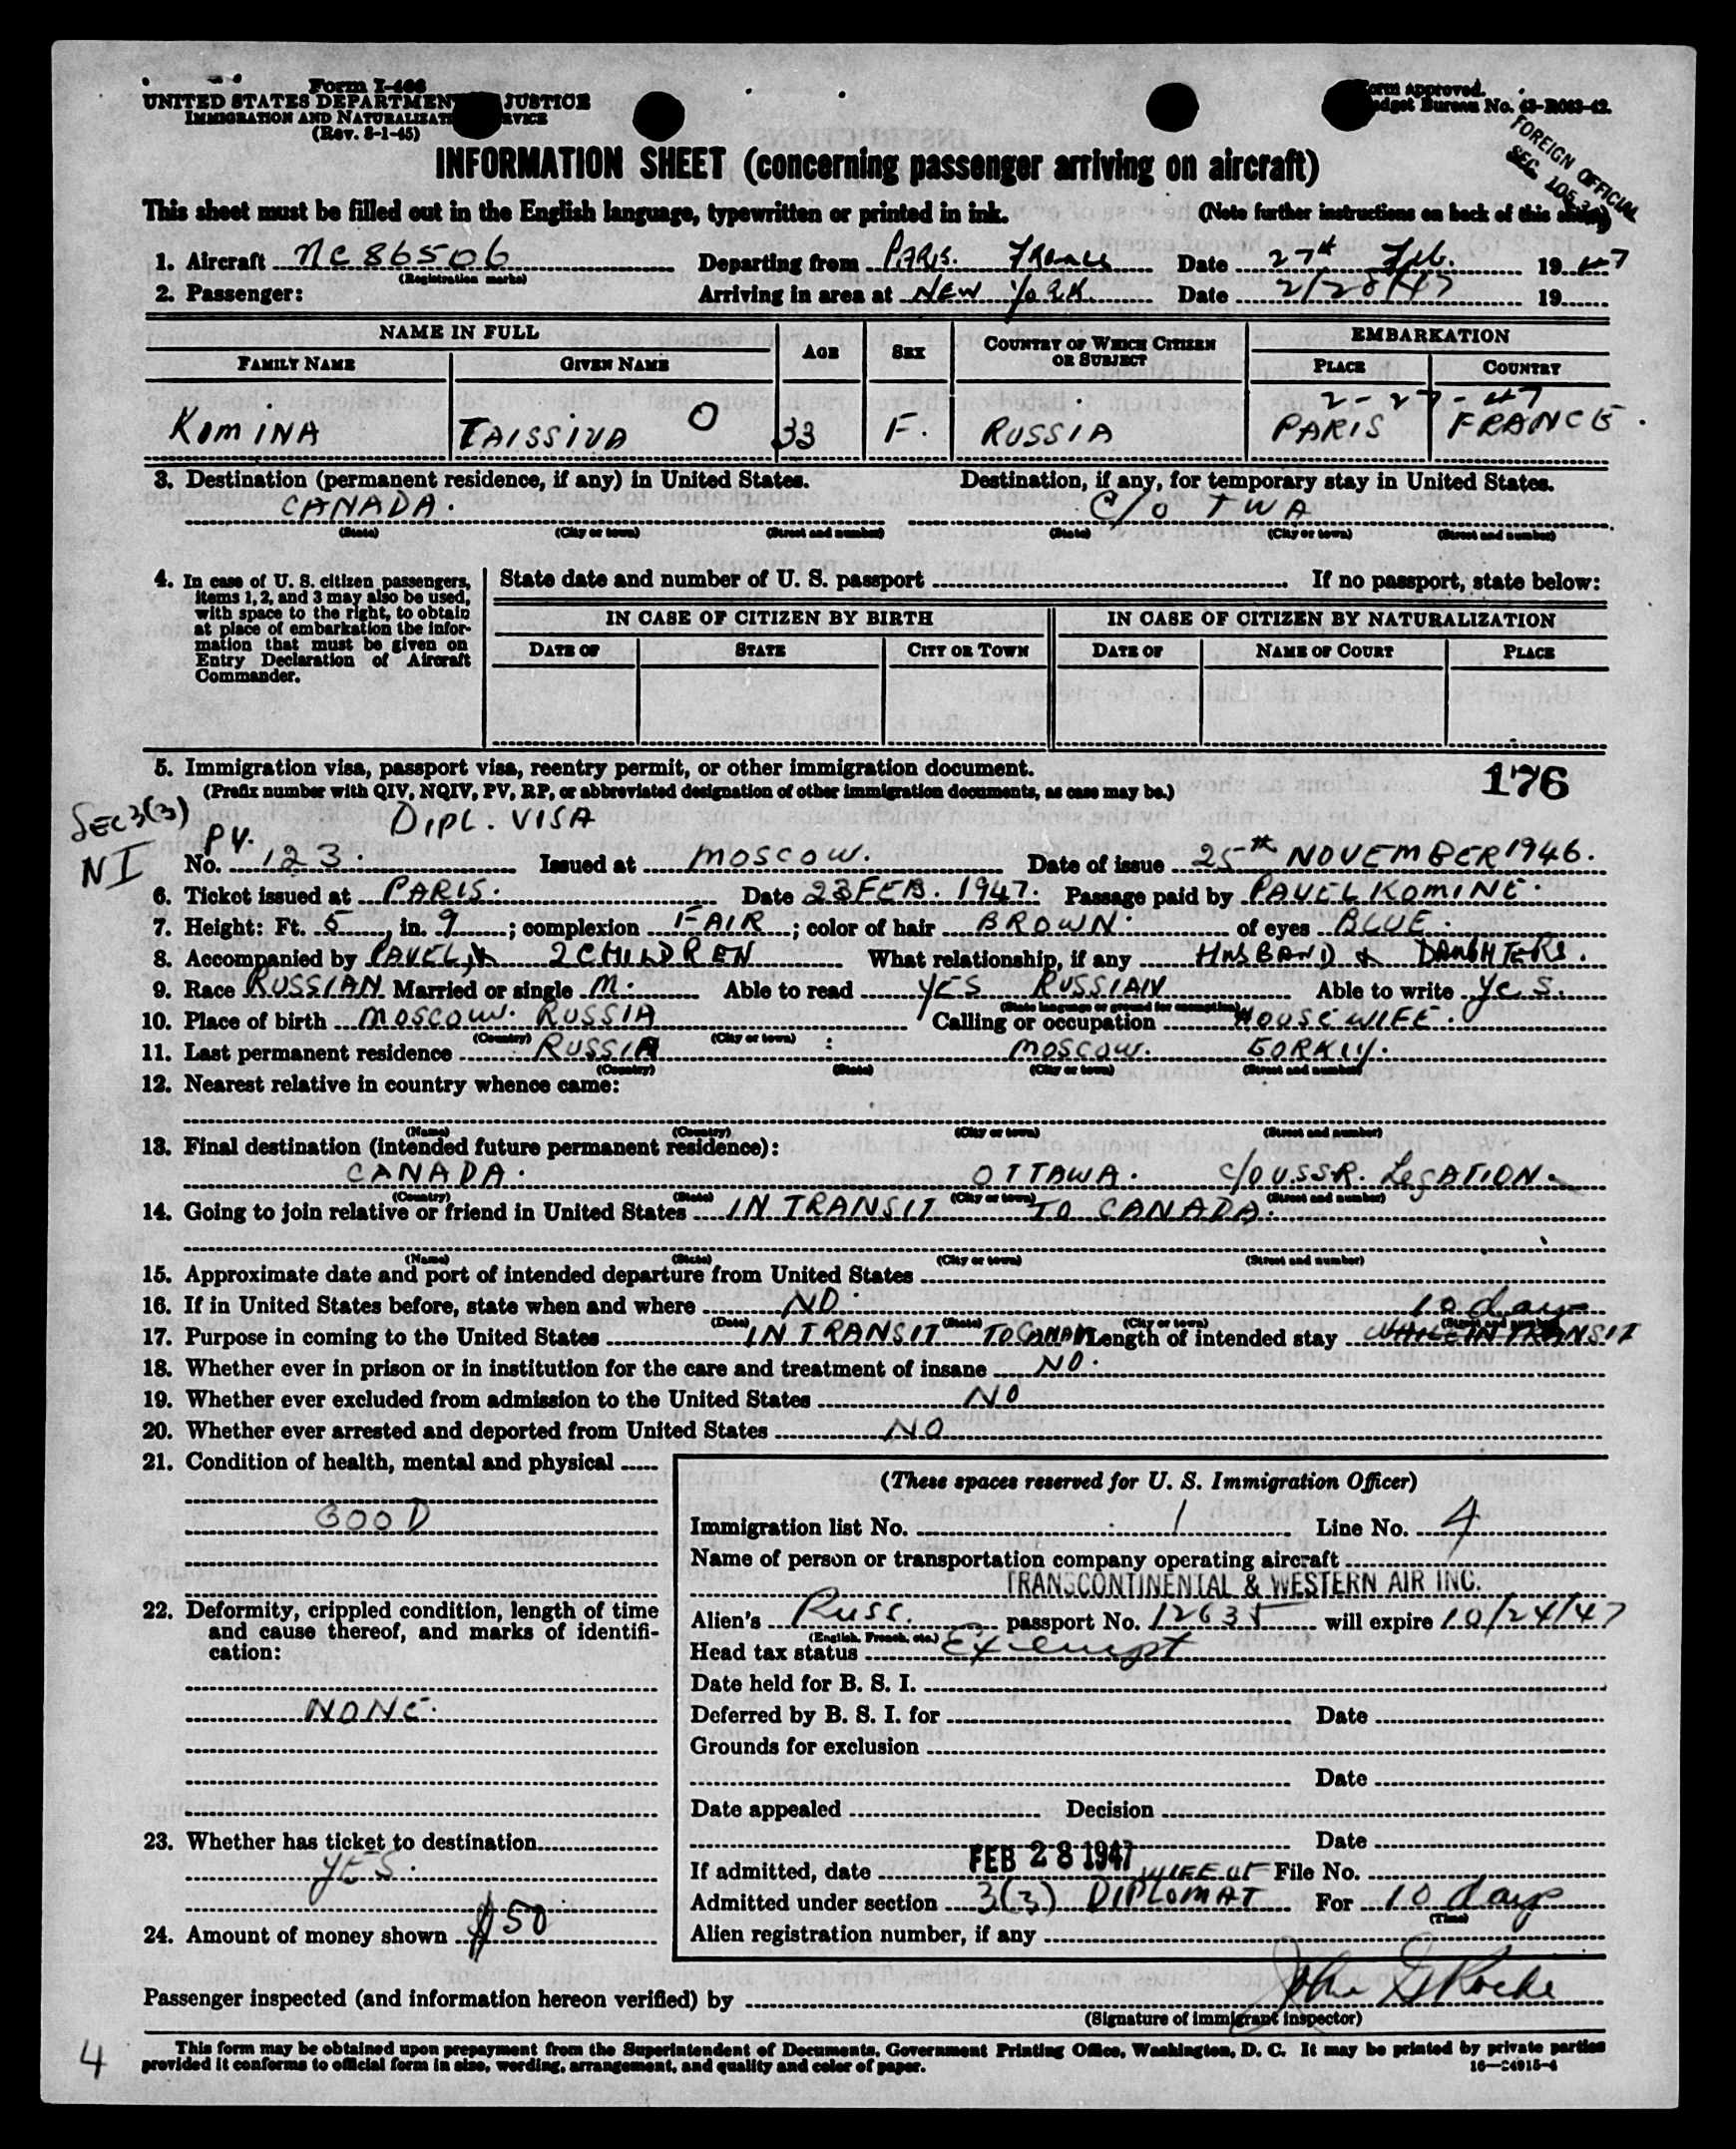 Form I-466
UNITED STATES DEPARTMENT JUSTICE
IMMIGRATION AND NATURALIZATI RVICE
(Rev. 8-1-45)
orm approved.
udget Bureau No. 43-R063-42.
FOREIGN OFFICIAL
SEC.
INFORMATION SHEET (concerning passenger arriving on aircraft)
This sheet must be filled out in the English language, typewritten or printed in ink. (Note further instructions on back of this sheet)
1. Aircraft NC86506 Departing from PARIS. France Date 27th Feb. 1947
(Registration marks)
2. Passenger: Arriving in area at NEW York Date 2/28/47 19
NAME IN FULL AGE SEX COUNTRY OF WHICH CITIZEN OR SUBJECT EMBARKATION
FAMILY NAME GIVEN NAME PLACE COUNTRY
2-27-47
KOMINA TAISSIVA O 33 F. RUSSIA PARIS FRANCE.
3. Destination (permanent residence, if any) in United States. Destination, if any, for temporary stay in United States.
CANADA. C/O TWA
(State) (City or town) (Street and number) (State) (City or town) (Street and number)
4. In case of U. S. citizen passengers, items 1, 2, and 3 may also be used, with space to the right, to obtain at place of embarkation the information that must be given on Entry Declaration of Aircraft Commander.
State date and number of U. S. passport If no passport, state below:
IN CASE OF CITIZEN BY BIRTH IN CASE OF CITIZEN BY NATURALIZATION
DATE OF STATE CITY OR TOWN DATE OF NAME OF COURT PLACE
5. Immigration visa, passport visa, reentry permit, or other immigration document. 176
(Prefix number with QIV, NQIV, PV, RP, or abbreviated designation of other immigration documents, as case may be.)
SEC 3(3)
NI
PV. DIPL. VISA
No. 123. Issued at MOSCOW. Date of issue 25th NOVEMBER 1946.
6. Ticket issued at PARIS. Date 23 FEB. 1947. Passage paid by PAVEL KOMINE.
7. Height: Ft. 5, in. 9; complexion FAIR; color of hair BROWN. of eyes BLUE.
8. Accompanied by PAVEL, & 2 CHILDREN What relationship, if any HUSBAND & DAUGHTERS.
9. Race RUSSIAN Married or single M. Able to read YES RUSSIAN Able to write Yes.
(State language or ground for exemption)
10. Place of birth MOSCOW. RUSSIA Calling or occupation HOUSEWIFE.
(Country) (City or town)
11. Last permanent residence RUSSIA MOSCOW. GORKIY.
(Country) (State) (City or town) (Street and number)
12. Nearest relative in country whence came:
(Name) (Country) (City or town) (Street and number)
13. Final destination (intended future permanent residence):
CANADA. OTTAWA. C/O USSR. LEGATION.
(Country) (State) (City or town) (Street and number)
14. Going to join relative or friend in United States IN TRANSIT TO CANADA.
(Name) (State) (City or town) (Street and number)
15. Approximate date and port of intended departure from United States
16. If in United States before, state when and where NO.
(Date) (State) (City or town) (Street and number)
10 days
17. Purpose in coming to the United States IN TRANSIT TO CANADA Length of intended stay WHILE IN TRANSIT
18. Whether ever in prison or in institution for the care and treatment of insane NO.
19. Whether ever excluded from admission to the United States NO
20. Whether ever arrested and deported from United States NO
21. Condition of health, mental and physical
GOOD
22. Deformity, crippled condition, length of time and cause thereof, and marks of identification:
NONE.
23. Whether has ticket to destination
YES.
24. Amount of money shown $50
(These spaces reserved for U. S. Immigration Officer)
Immigration list No. 1 Line No. 4
Name of person or transportation company operating aircraft
TRANSCONTINENTAL & WESTERN AIR INC.
Alien's Russ. passport No. 12635 will expire 10/24/47
(English, French, etc.)
Head tax status Exempt
Date held for B. S. I.
Deferred by B. S. I. for Date
Grounds for exclusion
Date
Date appealed Decision
Date
If admitted, date FEB 28 1947 File No.
WIFE OF
Admitted under section 3(3) DIPLOMAT For 10 days
(Time)
Alien registration number, if any
Passenger inspected (and information hereon verified) by
(Signature of immigrant inspector)
4
This form may be obtained upon prepayment from the Superintendent of Documents, Government Printing Office, Washington, D. C. It may be printed by private parties
provided it conforms to official form in size, wording, arrangement, and quality and color of paper. 16—24915-4